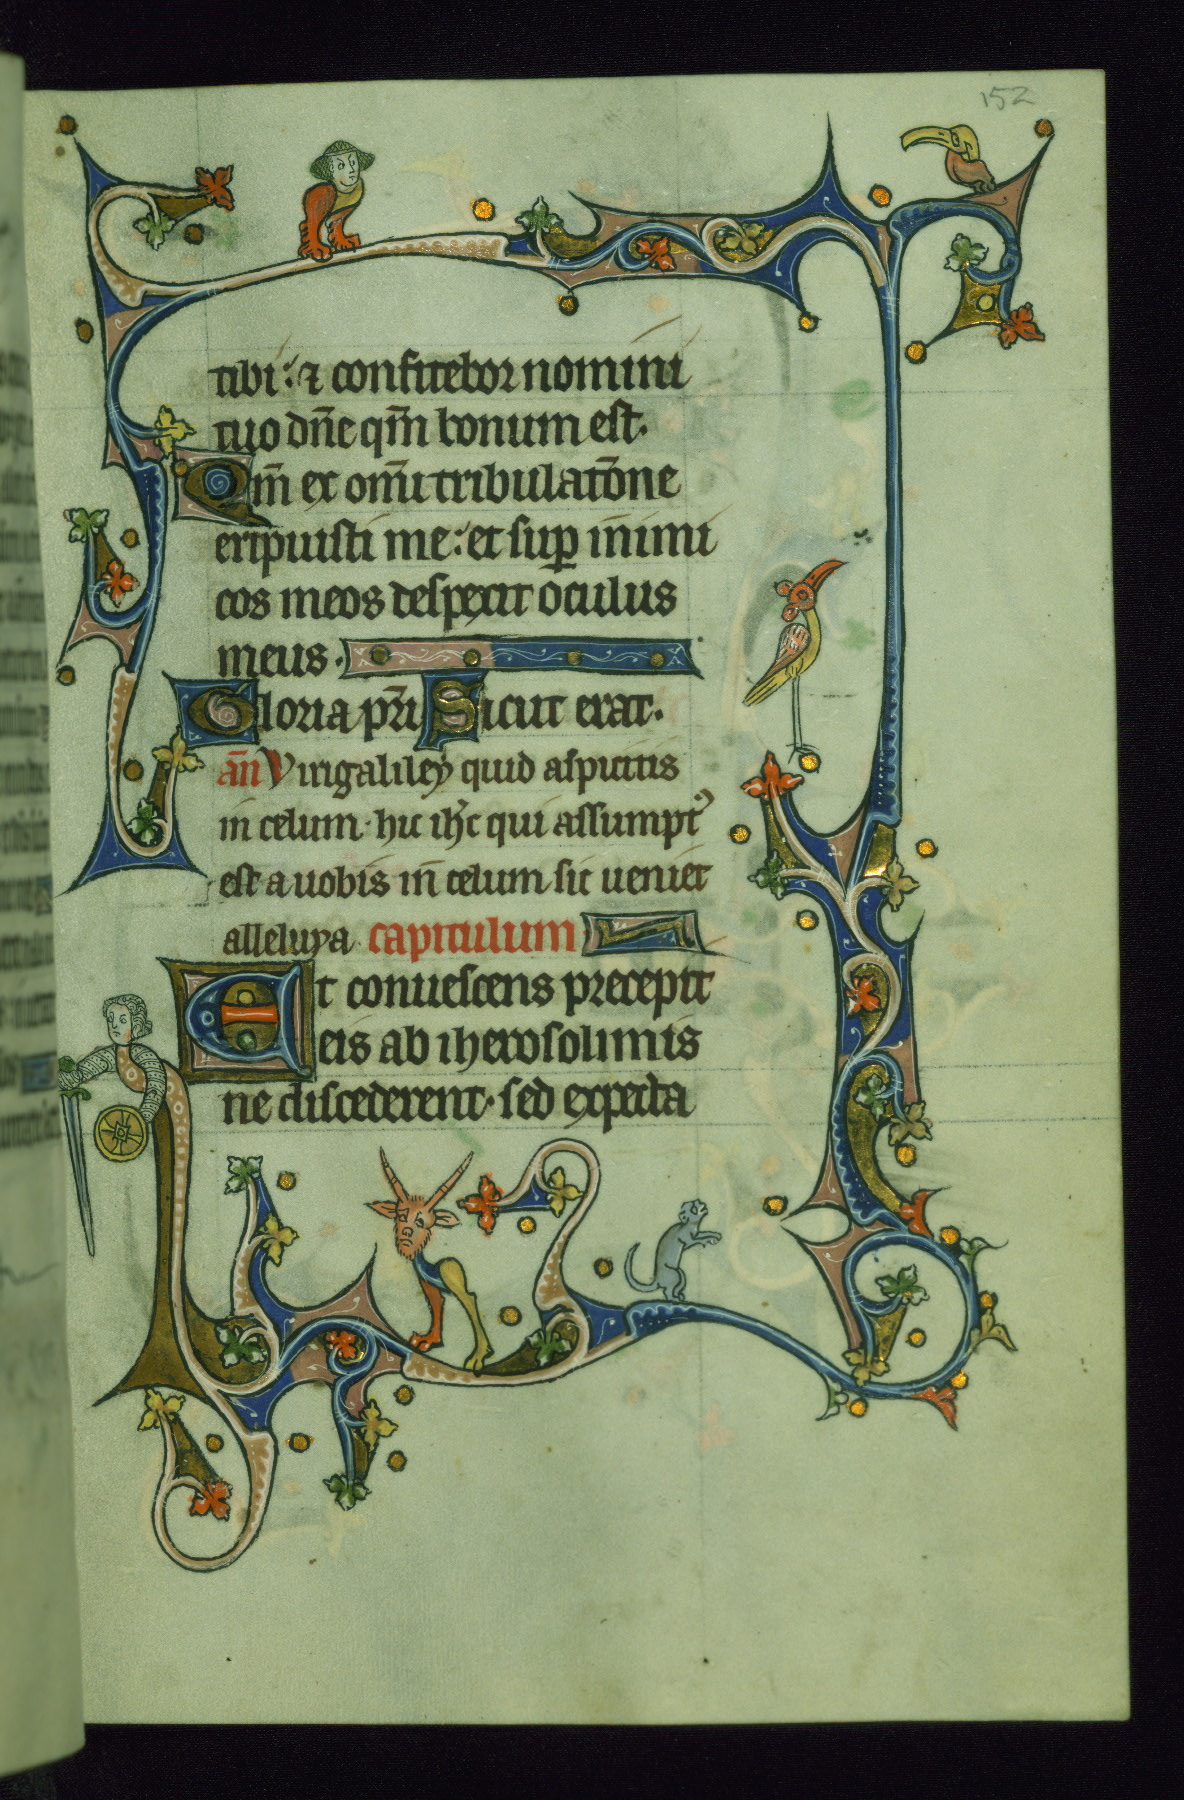 152
tibi : ⁊ confitebor nomini
tuo dn̄e qm̄ bonum est.
Qm̄ ex om̄i tribulatōne
eripuisti me : et suꝑ inimi
cos meos despexit oculus
meus.
Gloria pr̄i Sicut erat.
an̄ Viri galiley quid aspicitis
in celum. hic ih̄c qui assumptꝰ
est a uobis in̄ celum sic ueniet
alleluya. capitulum
Et conuescens precepit
eis ab iherosolimis
ne discederent. sed expecta